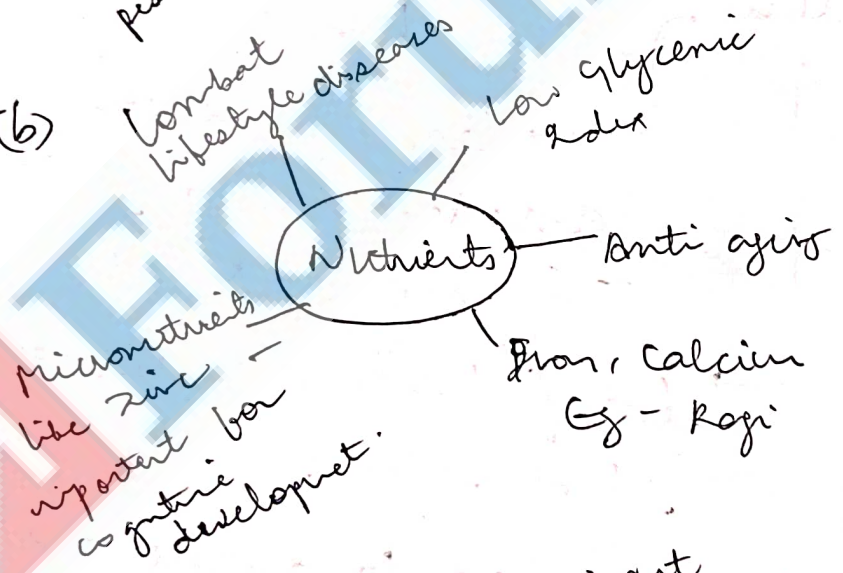 (b)
Combat
lifestyle diseases
Low Glycenic
Index
Nutrients
Anti aging
Iron, Calcium
Eg - Ragi
Micronutrients
like zinc
important for
cognitive
development.
Foru